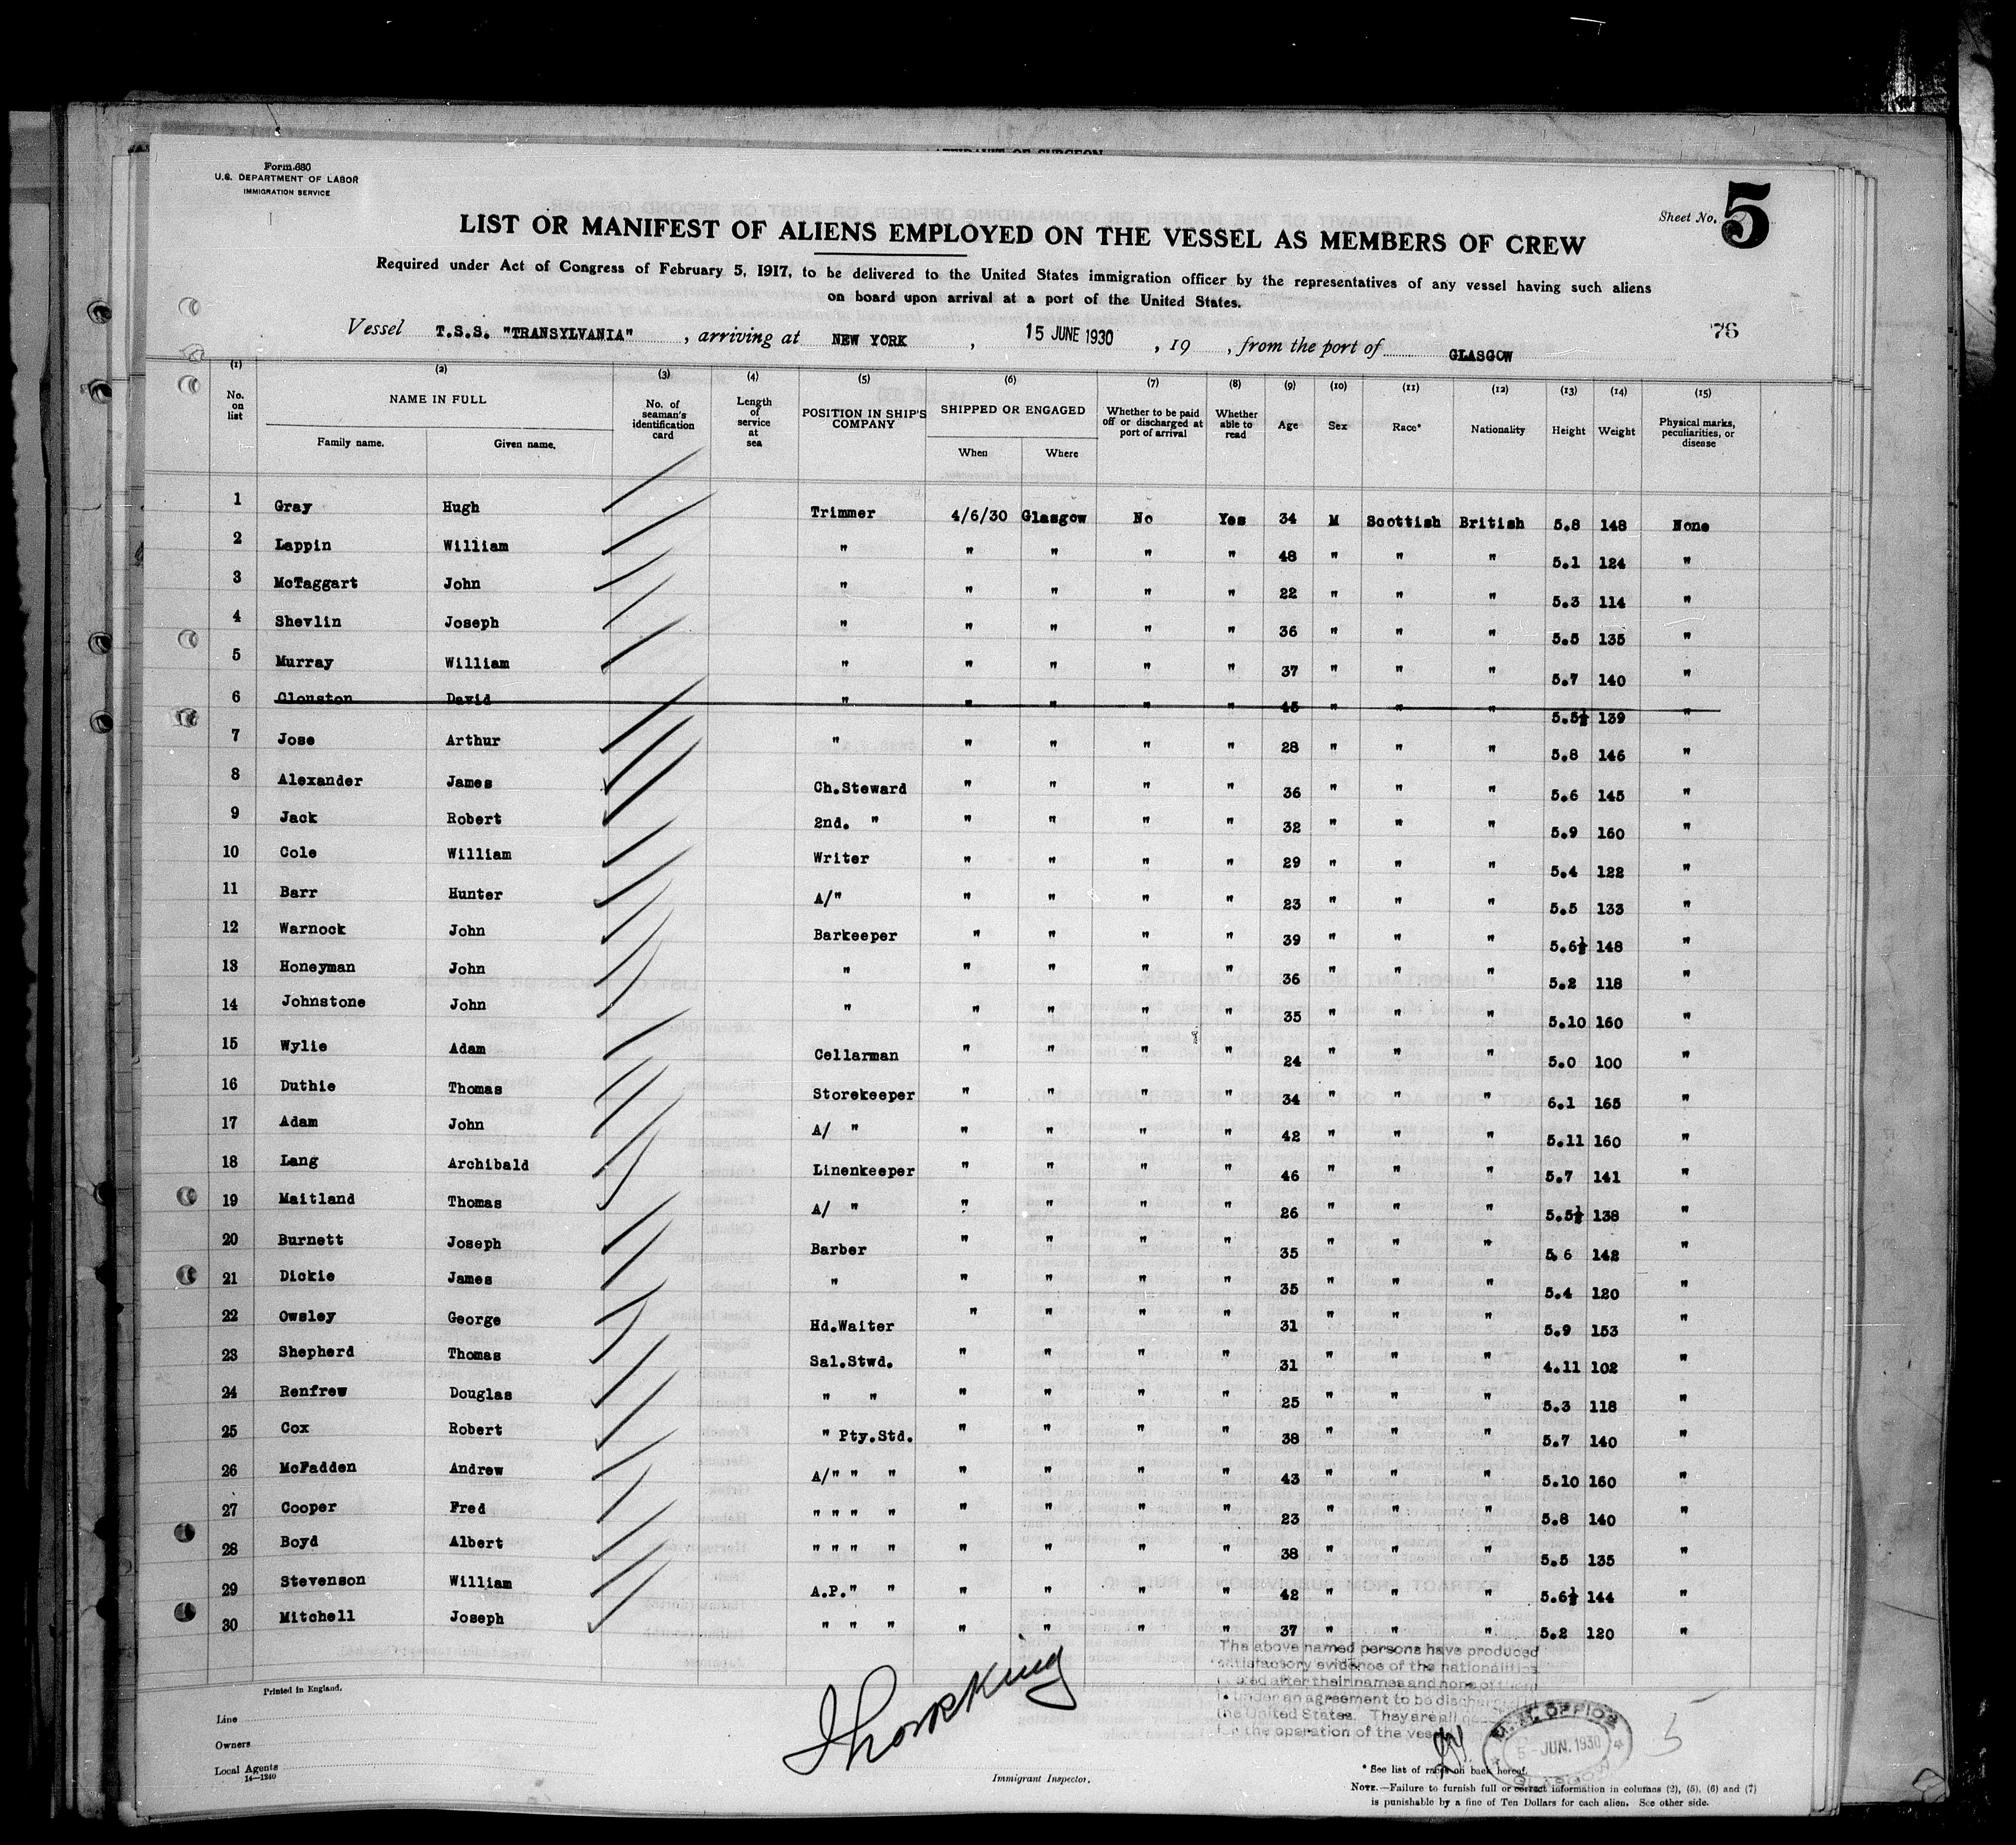 Form 680
U.S. DEPARTMENT OF LABOR
IMMIGRATION SERVICE
Sheet No. 5
LIST OR MANIFEST OF ALIENS EMPLOYED ON THE VESSEL AS MEMBERS OF CREW
Required under Act of Congress of February 5, 1917, to be delivered to the United States immigration officer by the representatives of any vessel having such aliens
on board upon arrival at a port of the United States.
76
Vessel T.S.S. "TRANSYLVANIA" , arriving at NEW YORK , 15 JUNE 1930 , 19 , from the port of GLASGOW
(1) (2) (3) (4) (5) (6) (7) (8) (9) (10) (11) (12) (13) (14) (15)
No. on list NAME IN FULL Family name. Given name. No. of seaman's identification card Length of service at sea POSITION IN SHIP'S COMPANY SHIPPED OR ENGAGED When Where Whether to be paid off or discharged at port of arrival Whether able to read Age Sex Race* Nationality Height Weight Physical marks, peculiarities, or disease
1 Gray Hugh Trimmer 4/6/30 Glasgow No Yes 34 M Scottish British 5.8 148 None
2 Lappin William " " " " " 48 " " " 5.1 124 "
3 McTaggart John " " " " " 22 " " " 5.3 114 "
4 Shevlin Joseph " " " " " 36 " " " 5.5 135 "
5 Murray William " " " " " 37 " " " 5.7 140 "
6 Clouston David " " " " " 45 " " " 5.5½ 139 "
7 Jose Arthur " " " " " 28 " " " 5.8 146 "
8 Alexander James Ch.Steward " " " " 36 " " " 5.6 145 "
9 Jack Robert 2nd. " " " " " 32 " " " 5.9 160 "
10 Cole William Writer " " " " 29 " " " 5.4 122 "
11 Barr Hunter A/" " " " " 23 " " " 5.5 133 "
12 Warnock John Barkeeper " " " " 39 " " " 5.6½ 148 "
13 Honeyman John " " " " " 36 " " " 5.2 118 "
14 Johnstone John " " " " " 35 " " " 5.10 160 "
15 Wylie Adam Cellarman " " " " 24 " " " 5.0 100 "
16 Duthie Thomas Storekeeper " " " " 34 " " " 6.1 165 "
17 Adam John A/ " " " " " 42 " " " 5.11 160 "
18 Lang Archibald Linenkeeper " " " " 46 " " " 5.7 141 "
19 Maitland Thomas A/ " " " " " 26 " " " 5.5½ 138 "
20 Burnett Joseph Barber " " " " 35 " " " 5.6 142 "
21 Dickie James " " " " " 35 " " " 5.4 120 "
22 Owsley George Hd.Waiter " " " " 31 " " " 5.9 153 "
23 Shepherd Thomas Sal.Stwd. " " " " 31 " " " 4.11 102 "
24 Renfrew Douglas " " " " " " 25 " " " 5.3 118 "
25 Cox Robert " Pty.Std. " " " " 38 " " " 5.7 140 "
26 McFadden Andrew A/" " " " " " " 43 " " " 5.10 160 "
27 Cooper Fred " " " " " " " " 23 " " " 5.8 140 "
28 Boyd Albert " " " " " " " " 38 " " " 5.5 135 "
29 Stevenson William A.P." " " " " " 42 " " " 5.6½ 144 "
30 Mitchell Joseph " " " " " " " 37 " " " 5.2 120 "
The above named persons have produced
satisfactory evidence of the nationalities
after their names and none of them
under an agreement to be discharged in
the United States. They are all
the operation of the
Printed in England.
Line
Owners
Local Agents
14—1240
Immigrant Inspector.
M.M. OFFICE
5 - JUN. 1930
GLASGOW
5
* See list of races on back hereof.
NOTE.—Failure to furnish full or correct information in columns (2), (5), (6) and (7)
is punishable by a fine of Ten Dollars for each alien. See other side.